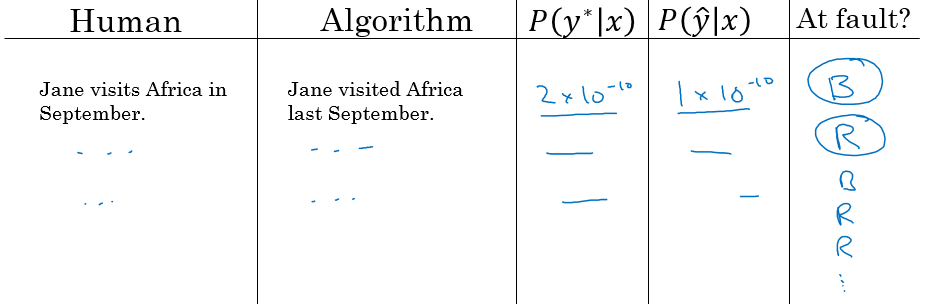 Human Algorithm P(y*|x) P(ŷ|x) At fault?
Jane visits Africa in September. Jane visited Africa last September. 2 × 10⁻¹⁰ 1 × 10⁻¹⁰ B
... ... — — R
... ... — — B
R
R
⋮